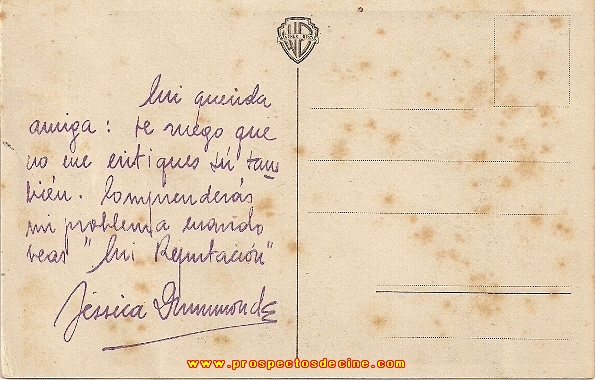 Mi querida
amiga: te ruego que
no me critiques tú tam
bién. Comprenderás
mi problema cuando
veas "Mi Reputación"
Jéssica Drummond
www.prospectosdecine.com